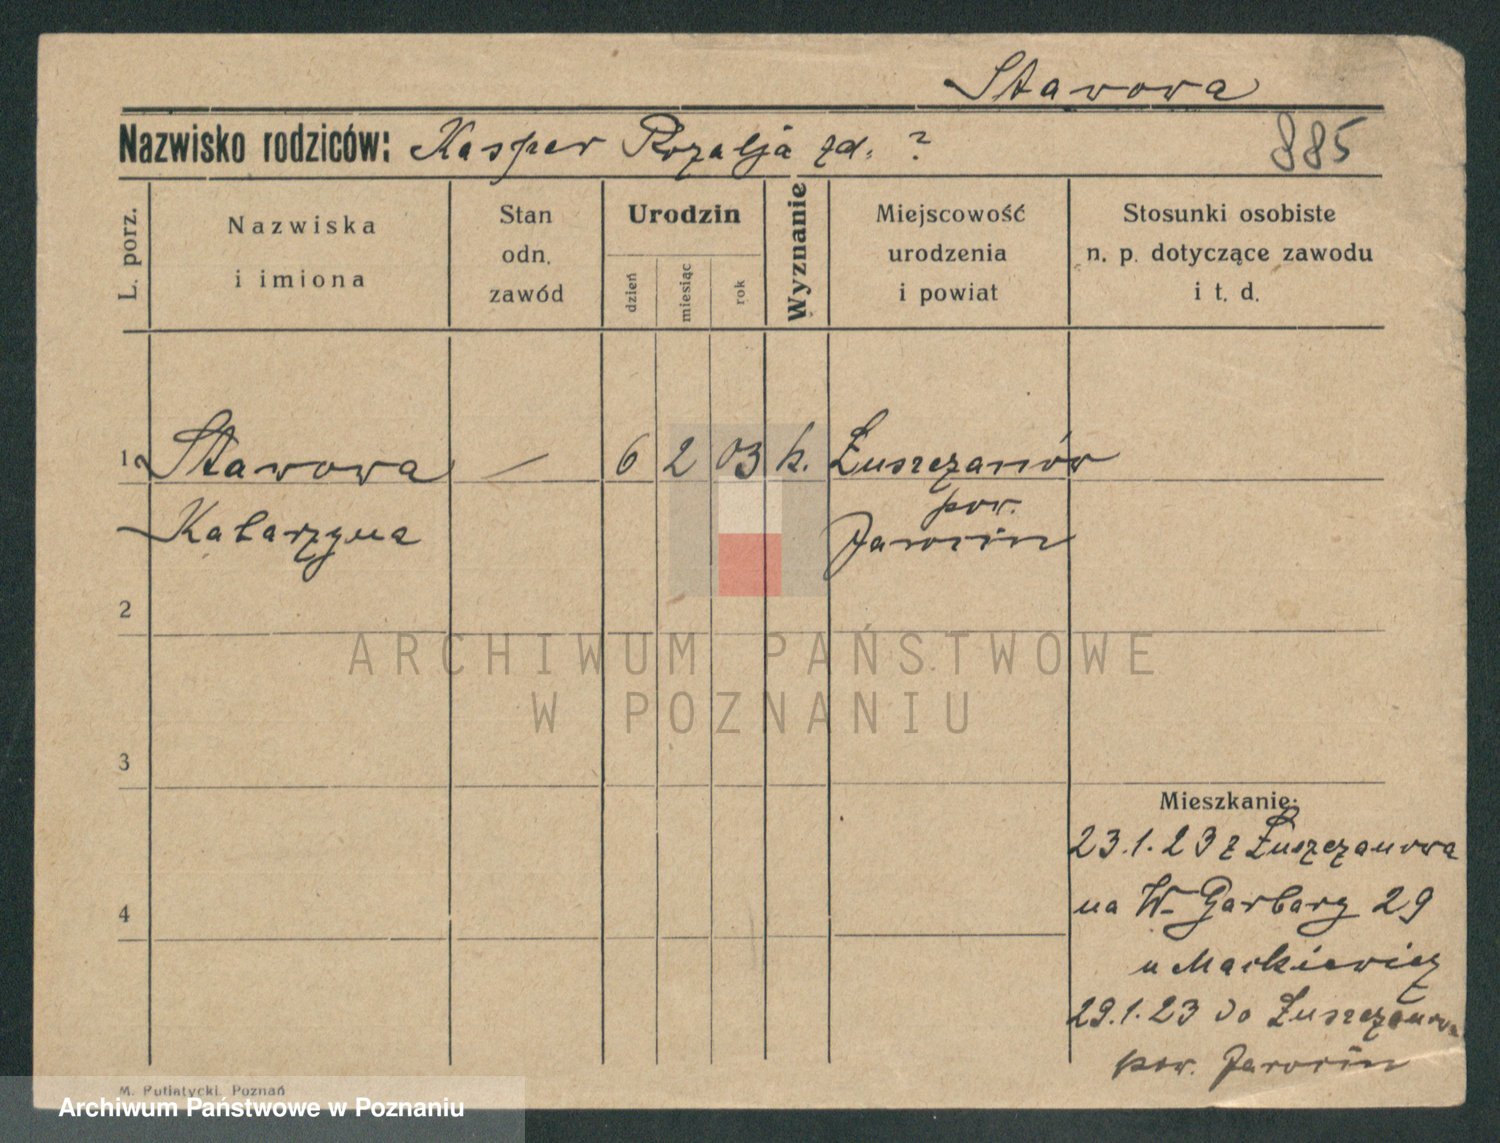 Stawowa
Nazwisko rodziców: Kasper Rozalja zd. ?
885
L. porz.
Nazwiska
i imiona
Stan
odn.
zawód
Urodzin
dzień
miesiąc
rok
Wyznanie
Miejscowość
urodzenia
i powiat
Stosunki osobiste
n. p. dotyczące zawodu
i t. d.
1 Stawowa — 6 2 03 k. Łuszczanów
Katarzyna pow.
Jarocin
2
3
4
Mieszkanie:
23.1.23 z Łuszczanowa
na W. Garbary 29
u Markiewicz
29.1.23 do Łuszczanowa
pow. Jarocin
M. Putiatycki, Poznań
ARCHIWUM PAŃSTWOWE
W POZNANIU
Archiwum Państwowe w Poznaniu